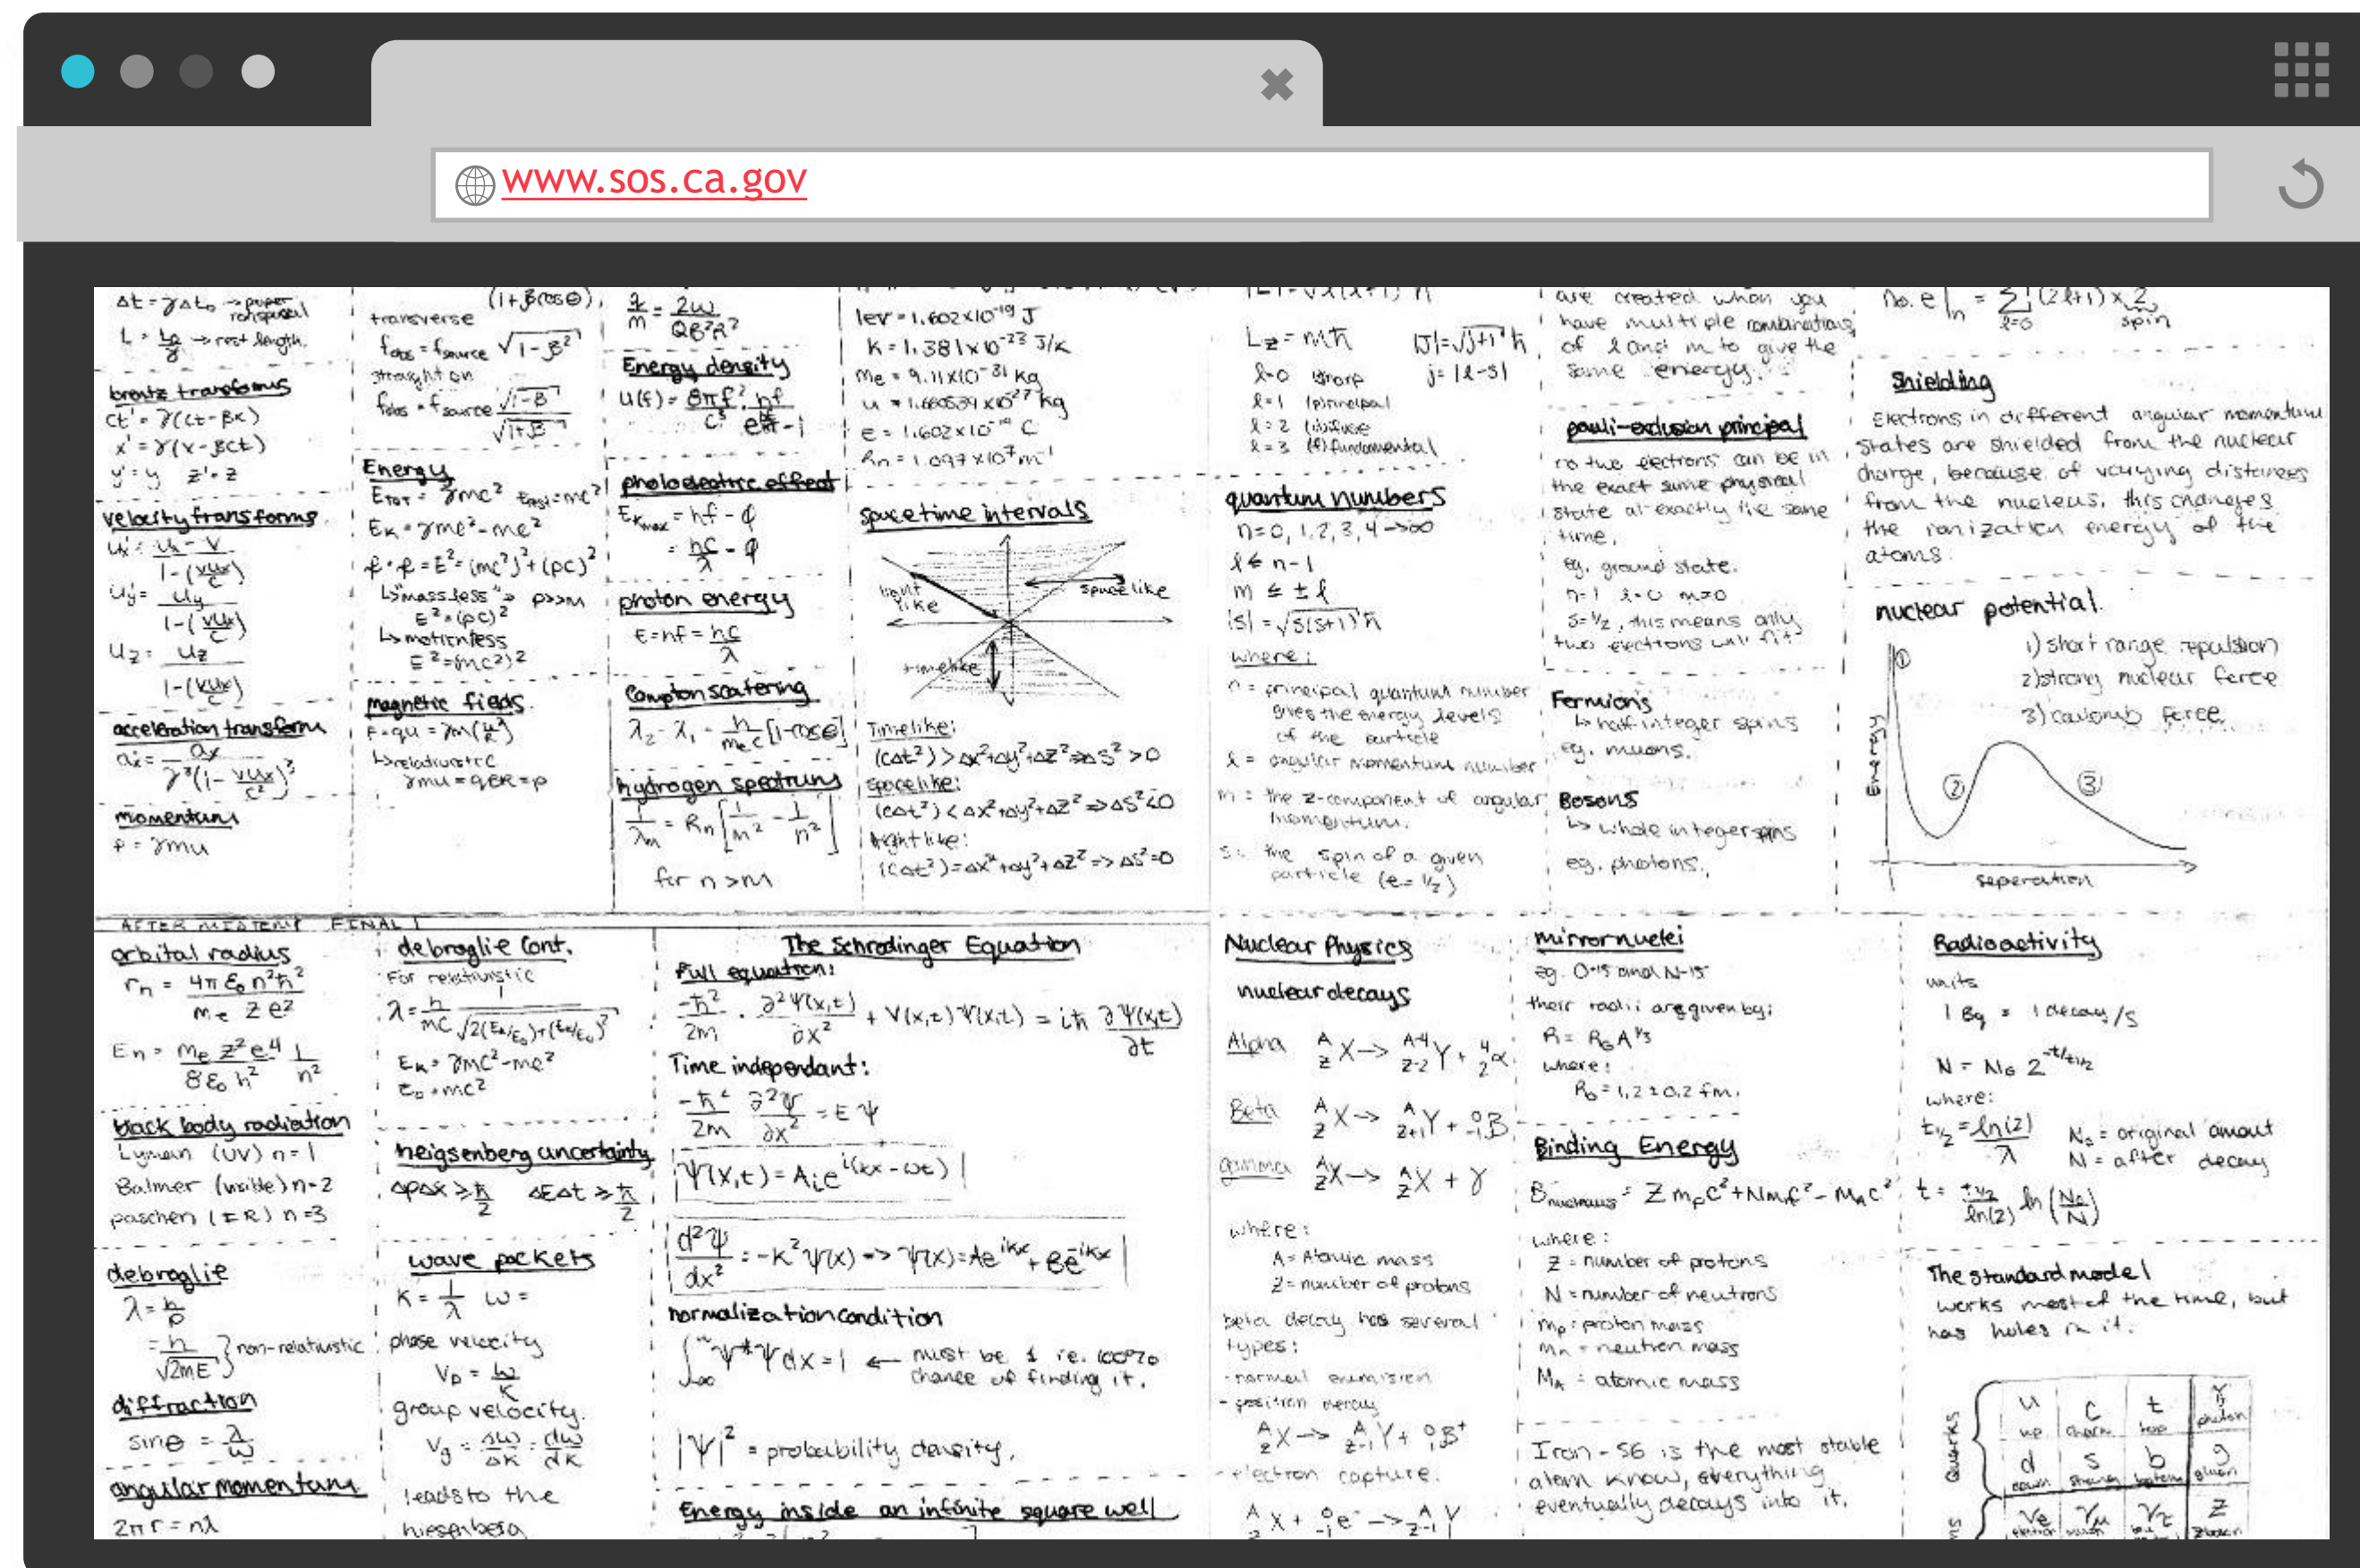 www.sos.ca.gov
Δt = γΔt₀ → proper
L = L₀/γ → rest length.
lorentz transforms
ct' = γ(ct - βx)
x' = γ(x - βct)
y' = y z' = z
velocity transforms
Ux' = Ux - V / 1 - (VUx/c)
Uy' = Uy / 1 - (VUx/c)
Uz = Uz / 1 - (VUx/c)
acceleration transform
ax' = ax / γ³(1 - VUx/c²)³
momentum
p = γmu
(1+βcosθ),
transverse
fobs = fsource √1-β²
straight on
fobs = fsource √1-β / √1+β
Energy
ETOT = γmc² Erest = mc²
EK = γmc² - mc²
p·p = E² = (mc²)² + (pc)²
↳ "massless" → p>>m
E² = (pc)²
↳ motionless
E² = (mc²)²
magnetic fields.
F = qu = γm(u²/R)
↳ relativistic
γmu = qBR = p
q/m = 2W / QB²R²
Energy density
U(f) = 8πf²/c³ · hf / e -1
photoelectric effect
EKmax = hf - φ
= hc/λ - φ
photon energy
E = hf = hc/λ
Compton scatering
λ₂ - λ₁ = h/mec [1-cosθ]
hydrogen spectrum
1/λm = Rn [1/m² - 1/n²]
for n > m
1ev = 1.602x10⁻¹⁹ J
K = 1.381x10⁻²³ J/K
me = 9.11x10⁻³¹ Kg
u = 1.660539 x10²⁷ kg
e = 1.602x10⁻¹⁹ C
Rn = 1.097x10⁷ m⁻¹
spacetime intervals
light like
spacelike
timelike
Timelike:
(cΔt²) > Δx²+Δy²+Δz² ⇒ Δs² > 0
spacelike:
(cΔt²) < Δx²+Δy²+Δz² ⇒ Δs² < 0
lightlike:
(cΔt²) = Δx²+Δy²+Δz² => Δs² = 0
|L| = √l(l+1) ħ
Lz = mħ |J| = √j+1 ħ
l=0 sharp j = |l-s|
l=1 (p)principal
l=2 diffuse
l=3 (f) fundamental
quantum numbers
n = 0, 1, 2, 3, 4 → ∞
l ≤ n-1
m ≤ ±l
|s| = √s(s+1) ħ
where:
n = principal quantum number
gives the energy levels
of the particle
l = angular momentum number
m = the z-component of angular
momentum.
s = the spin of a given
particle (e = 1/2)
are created when you
have multiple combinations
of l and m to give the
same energy.
pauli-exclusion principal
no two electrons can be in
the exact same physical
state at exactly the same
time.
eg. ground state.
n=1 l=0 m=0
s=1/2, this means only
two electrons will fit
Fermions
↳ half integer spins
eg. muons.
Bosons
↳ whole integer spins
eg. photons.
No. e|n = Σ l=0 (2l+1) x 2
spin
Shielding
Electrons in different angular momentum
states are shielded from the nuclear
charge, because of varying distances
from the nucleus, this changes
the ionization energy of the
atoms.
nuclear potential.
1) short range repulsion
2) strong nuclear force
3) coulomb force.
Energy
① ② ③
seperation
AFTER MIDTERM FINAL!
orbital radius
rn = 4πε₀n²ħ² / me Ze²
En = me Z²e⁴ / 8ε₀h² 1/n²
black body radiation
Lyman (UV) n=1
Balmer (visible) n=2
paschen (IR) n=3
debroglie
λ = h/p
= h/√2mE } non-relativistic
diffraction
sinθ = λ/w
angular momentum
2πr = nλ
debroglie Cont.
For relativistic
λ = h/mc 1/√2(Ek/E₀)+(Ek/E₀)²
Ek = γmc² - mc²
E₀ = mc²
heigsenberg uncertainty
ΔpΔx ≥ ħ/2 ΔEΔt ≥ ħ/2
wave packets
K = 1/λ ω =
phase velocity
Vp = ω/K
group velocity.
Vg = Δω/ΔK = dω/dK
leads to the
hiesenberg
The Schrodinger Equation
Full equation:
-ħ²/2m · ∂²Ψ(x,t)/∂x² + V(x,t)Ψ(x,t) = iħ ∂Ψ(x,t)/∂t
Time independant:
-ħ²/2m ∂²Ψ/∂x² = EΨ
Ψ(x,t) = Aie^i(kx-ωt)
d²Ψ/dx² = -K²Ψ(x) => Ψ(x) = Ae^ikx + Be^-ikx
normalization condition
∫Ψ*Ψdx = 1 ← must be 1 ie. 100%
chance of finding it.
|Ψ|² = probability density.
Energy inside an infinite square well
Nuclear Physics
nuclear decays
Alpha A/Z X → A-4/Z-2 Y + 4/2 α
Beta A/Z X → A/Z+1 Y + 0/-1 β
gamma A/Z X → A/Z X + γ
where:
A = Atomic mass
Z = number of protons
beta decay has several
types:
- normal
- positron decay
A/Z X → A/Z-1 Y + 0/1 β⁺
- electron capture.
A/Z X + 0/-1 e⁻ → A/Z-1 Y
mirror nuclei
eg. O-15 and N-15
their radii are given by:
R = R₀A^1/3
where:
R₀ = 1.2 ± 0.2 fm.
Binding Energy
Bnucleus = Zmpc² + Nmnc² - MAc²
where:
Z = number of protons
N = number of neutrons
mp = proton mass
mn = neutron mass
MA = atomic mass
Iron-56 is the most stable
atom know, everything
eventually decays into it.
Radioactivity
units
1 Bq = 1 decay/s
N = N₀ 2^-t/t1/2
where:
t1/2 = ln(2)/λ N₀ = original amout
N = after decay
t = t1/2/ln(2) ln(N₀/N)
The standard model
works most of the time, but
has holes in it.
Quarks
u c t γ
up charm top photon
d s b g
down strange bottom gluon
νe νμ ντ Z